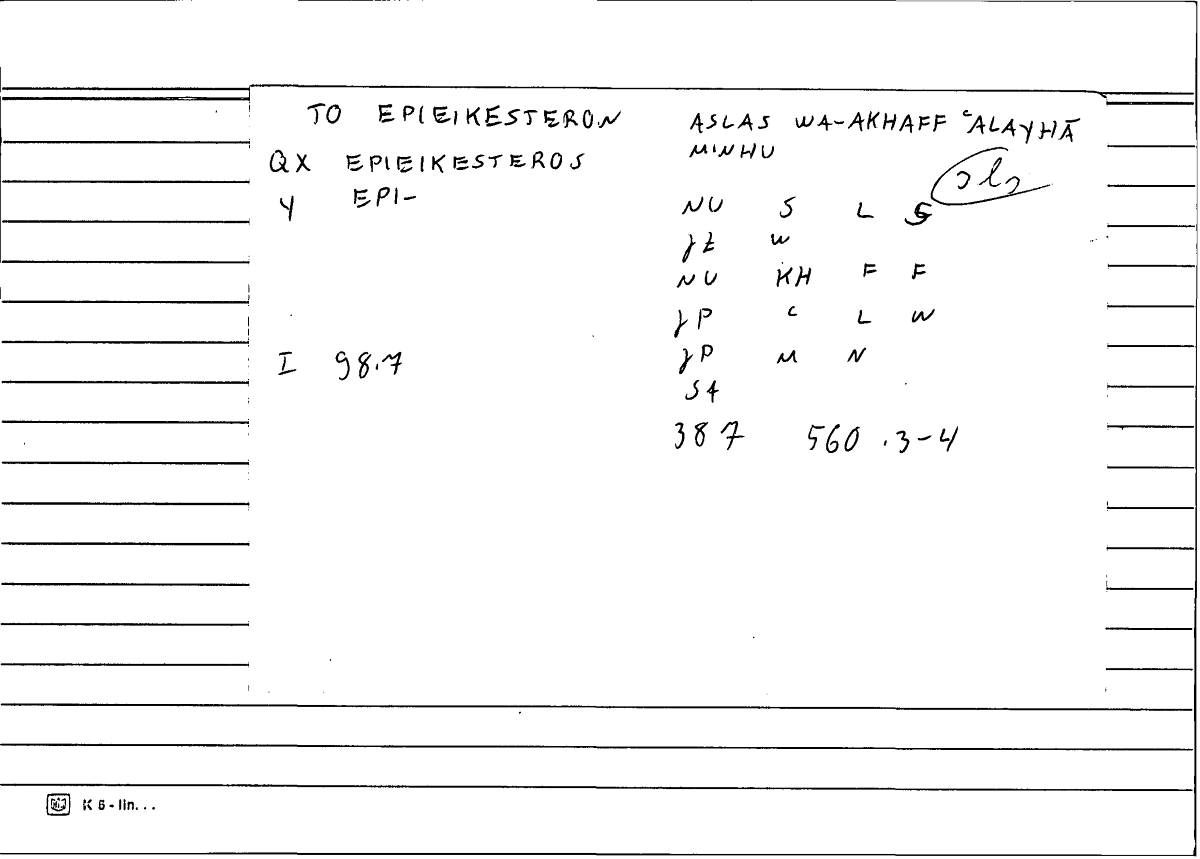 TO EPIEIKESTERON
QX EPIEIKESTEROS
Y EPI-
I 98.7
ASLAS WA-AKHAFF ʿALAYHĀ
MINHU
NU S L S
JZ W
NU KH F F
JP ʿ L W
JP M N
S4
387 560 .3-4
K 6 - lin. . .